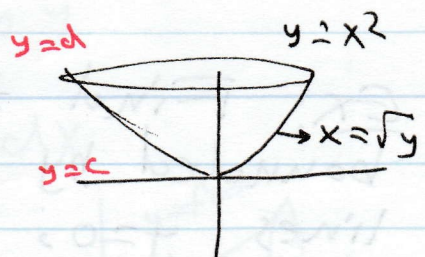 y=d
y=x²
x=√y
y=c